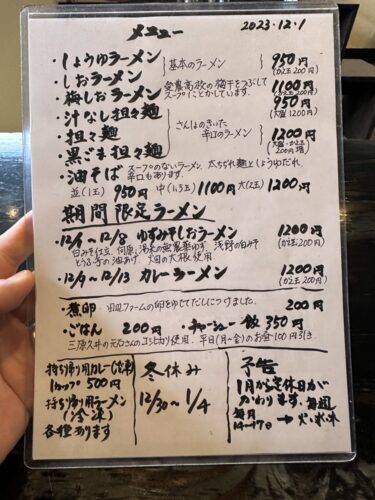 メニュー 2023.12.1
・しょうゆラーメン 基本のラーメン 950円
・しおラーメン (かえ玉200円)
・梅しおラーメン 愛農高校の梅干をつぶしてスープにとかしています。 1100円 (かえ玉200円)
・汁なし担々麺 950円 (大盛1200円)
・担々麺 さんしょのきいた辛口のラーメン 1200円
・黒ごま担々麺 (大盛・かえ玉200円増)
・油そば スープのないラーメン、太ちぢれ麺としょうゆだれ。辛口もあります。
並(1玉) 950円 中(1.5玉) 1100円 大(2玉) 1200円
期間限定ラーメン
・12/1〜12/8 ゆずみそしおラーメン 1200円
(かえ玉200円)
・12/9〜12/13 カレーラーメン 1200円
(かえ玉200円)
・煮卵 田辺ファームの卵をゆせてだしにつけました。 200円
・ごはん 200円 ・チャーシュー飯 350円
コシヒカリ使用、平日(月〜金)のお昼100円引き
持ち帰り用カレー(冷凍)
1カップ 500円
持ち帰り用ラーメン
(冷凍)
各種あります
冬休み
12/30〜1/4
予告
1月から定休日が
かわります。毎週
毎月
14〜17日 → 火・水・木